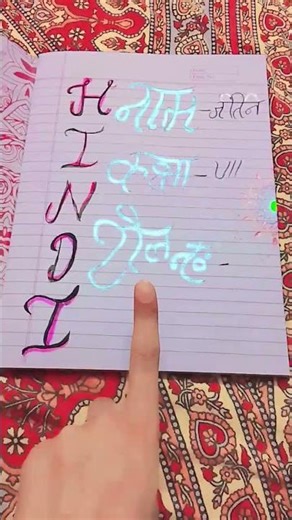 HINDI
नाम - जतिन
कक्षा - VII
रोल नं० -